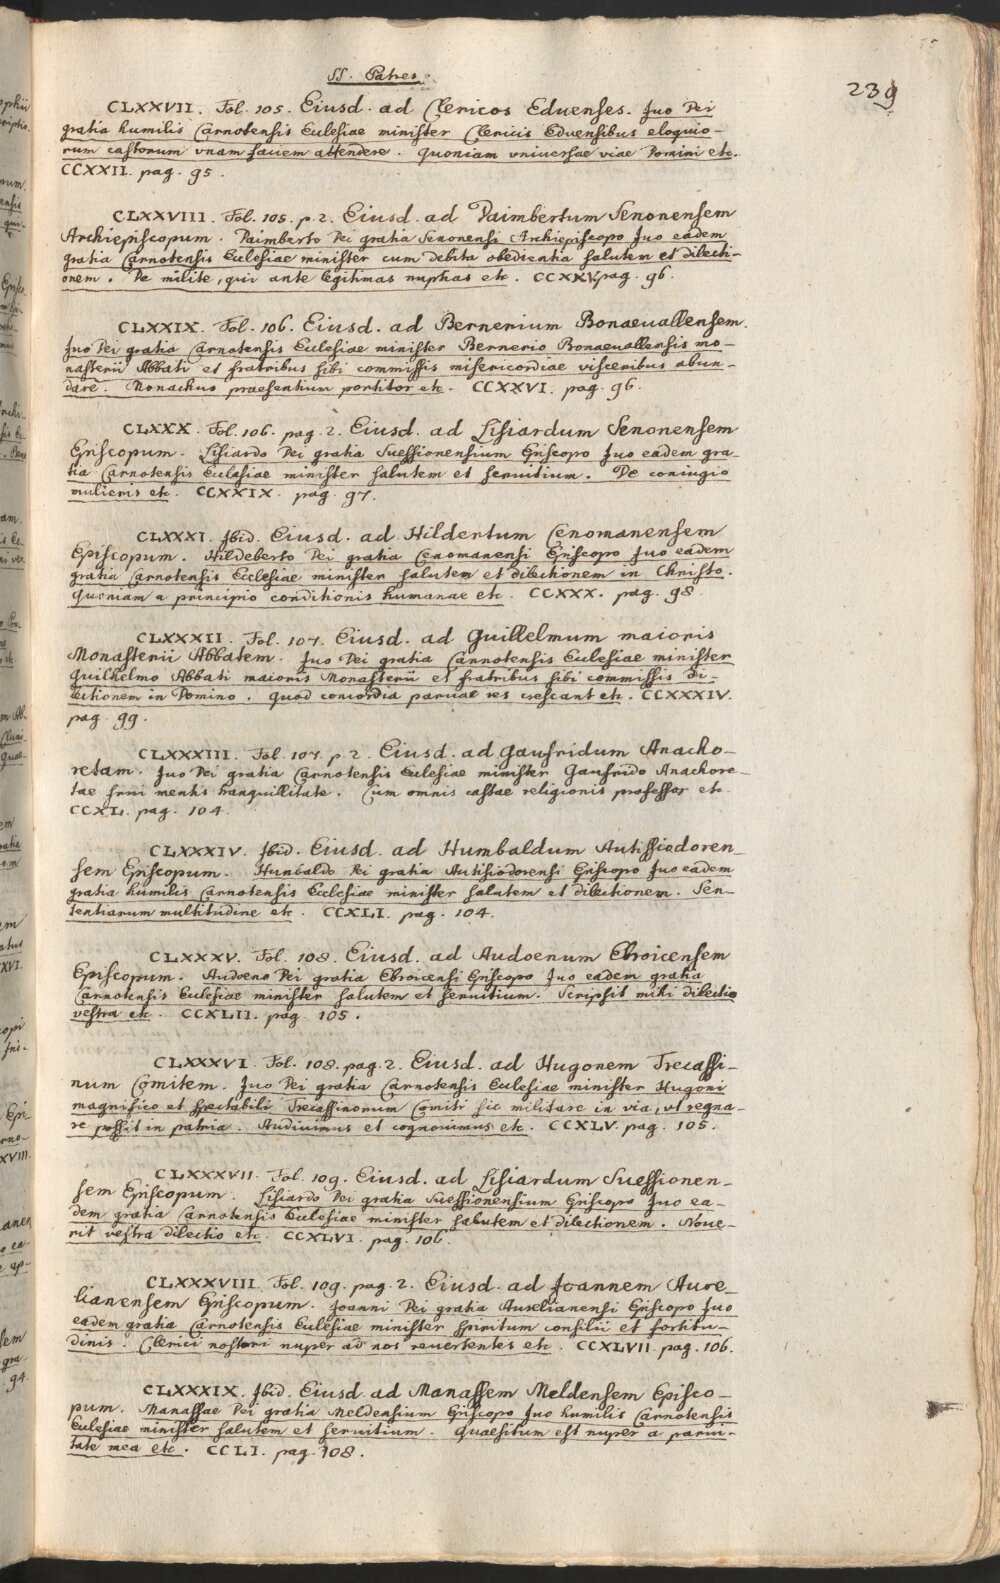 SS. Patres.
239
CLXXVII. Fol. 105. Eiusd. ad Clericos Eduenses. Juo Dei
gratia humilis Carnotensis Eulesiae minister Clericis Eduensibus eloquio-
rum castorum vnam faciem attendere. Quoniam vniuersae viae Domini etc.
CCXXII. pag. 95.
CLXXVIII. Fol. 105. p. 2. Eiusd. ad Daimbertum Senonensem
Archiepiscopum. Daimberto Dei gratia Senonensi Archiepiscopo Juo eadem
gratia Carnotensis Eulesiae minister cum debita obedientia salutem et dilecti-
onem. De milite, qui ante legitimas nuptias etc. CCXXV. pag. 96.
CLXXIX. Fol. 106. Eiusd. ad Bernerium Bonaeuallensem.
Juo Dei gratia Carnotensis Eulesiae minister Bernerio Bonaeuallensis mo-
nasterii Abbati et fratribus sibi commissis misericordiae visceribus abun-
dare. Monachus praesentium portitor etc. CCXXVI. pag. 96.
CLXXX. Fol. 106. pag. 2. Eiusd. ad Lisiardum Senonensem
Episcopum. Lisiardo Dei gratia Suessionensium Episcopo Juo eadem gra-
tia Carnotensis Eulesiae minister salutem et seruitium. De coniugio
mulieris etc. CCXXIX. pag. 97.
CLXXXI. Jbid. Eiusd. ad Hildertum Cenomanensem
Episcopum. Hildeberto Dei gratia Cenomanensi Episcopo Juo eadem
gratia Carnotensis Ecclesiae minister salutem et dilectionem in Christo.
Quoniam a principio conditionis humanae etc. CCXXX. pag. 98.
CLXXXII. Fol. 107. Eiusd. ad Guillelmum maioris
Monasterii Abbatem. Juo Dei gratia Carnotensis Eulesiae minister
Guilhelmo Abbati maioris Monasterii et fratribus sibi commissis di-
lectionem in Domino. Quod concordia paruae res crescant etc. CCXXXIV.
pag. 99.
CLXXXIII. Fol. 107. p. 2. Eiusd. ad Gaufridum Anacho-
retam. Juo Dei gratia Carnotensis Eulesiae minister Gaufrido Anachore-
tae frui mentis tranquillitate. Cum omnis castae religionis professor etc.
CCXL. pag. 104.
CLXXXIV. Jbid. Eiusd. ad Humbaldum Autissiodoren-
sem Episcopum. Hunbaldo Dei gratia Autisiodorensi Episcopo Juo eadem
gratia humilis Carnotensis Ecclesiae minister salutem et dilectionem. Sen-
tentiarum multitudine etc. CCXLI. pag. 104.
CLXXXV. Fol. 108. Eiusd. ad Audoenum Ebroicensem
Episcopum. Audoeno Dei gratia Ebroicensi Episcopo Juo eadem gratia
Carnotensis Eulesiae minister salutem et seruitium. Scripsit mihi dilectio
vestra etc. CCXLII. pag. 105.
CLXXXVI. Fol. 108. pag. 2. Eiusd. ad Hugonem Trecassi-
num Comitem. Juo Dei gratia Carnotensis Eulesiae minister Hugoni
magnifico et spectabili Trecassinorum Comiti sic militare in via, vt regna-
re possit in patria. Audiuimus et cognouimus etc. CCXLV. pag. 105.
CLXXXVII. Fol. 109. Eiusd. ad Lisiardum Suessionen-
sem Episcopum. Lisiardo Dei gratia Suessionensium Episcopo Juo ea-
dem gratia Carnotensis Eulesiae minister salutem et dilectionem. Noue-
rit vestra dilectio etc. CCXLVI. pag. 106.
CLXXXVIII. Fol. 109. pag. 2. Eiusd. ad Joannem Aure-
lianensem Episcopum. Joanni Dei gratia Aurelianensi Episcopo Juo
eadem gratia Carnotensis Eulesiae minister spiritum consilii et fortitu-
dinis. Clerici nostri nuper ad nos reuertentes etc. CCXLVII. pag. 106.
CLXXXIX. Jbid. Eiusd. ad Manassem Meldensem Episco-
pum. Manassae Dei gratia Meldensium Episcopo Juo humilis Carnotensis
Eulesiae minister salutem et seruitium. Quaesitum est nuper a parui-
tate mea etc. CCLI. pag. 108.